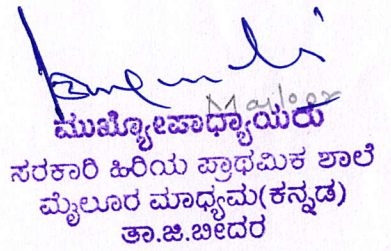 ಮುಖ್ಯೋಪಾಧ್ಯಾಯರು
ಸರಕಾರಿ ಹಿರಿಯ ಪ್ರಾಥಮಿಕ ಶಾಲೆ
ಮೈಲೂರ ಮಾಧ್ಯಮ(ಕನ್ನಡ)
ತಾ.ಜಿ.ಬೀದರ